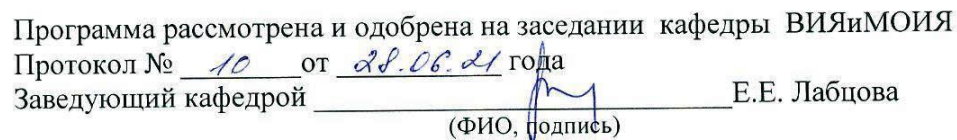 Программа рассмотрена и одобрена на заседании кафедры ВИЯиМОИЯ
Протокол № 10 от 28.06.21 года
Заведующий кафедрой Е.Е. Лабцова
(ФИО, подпись)